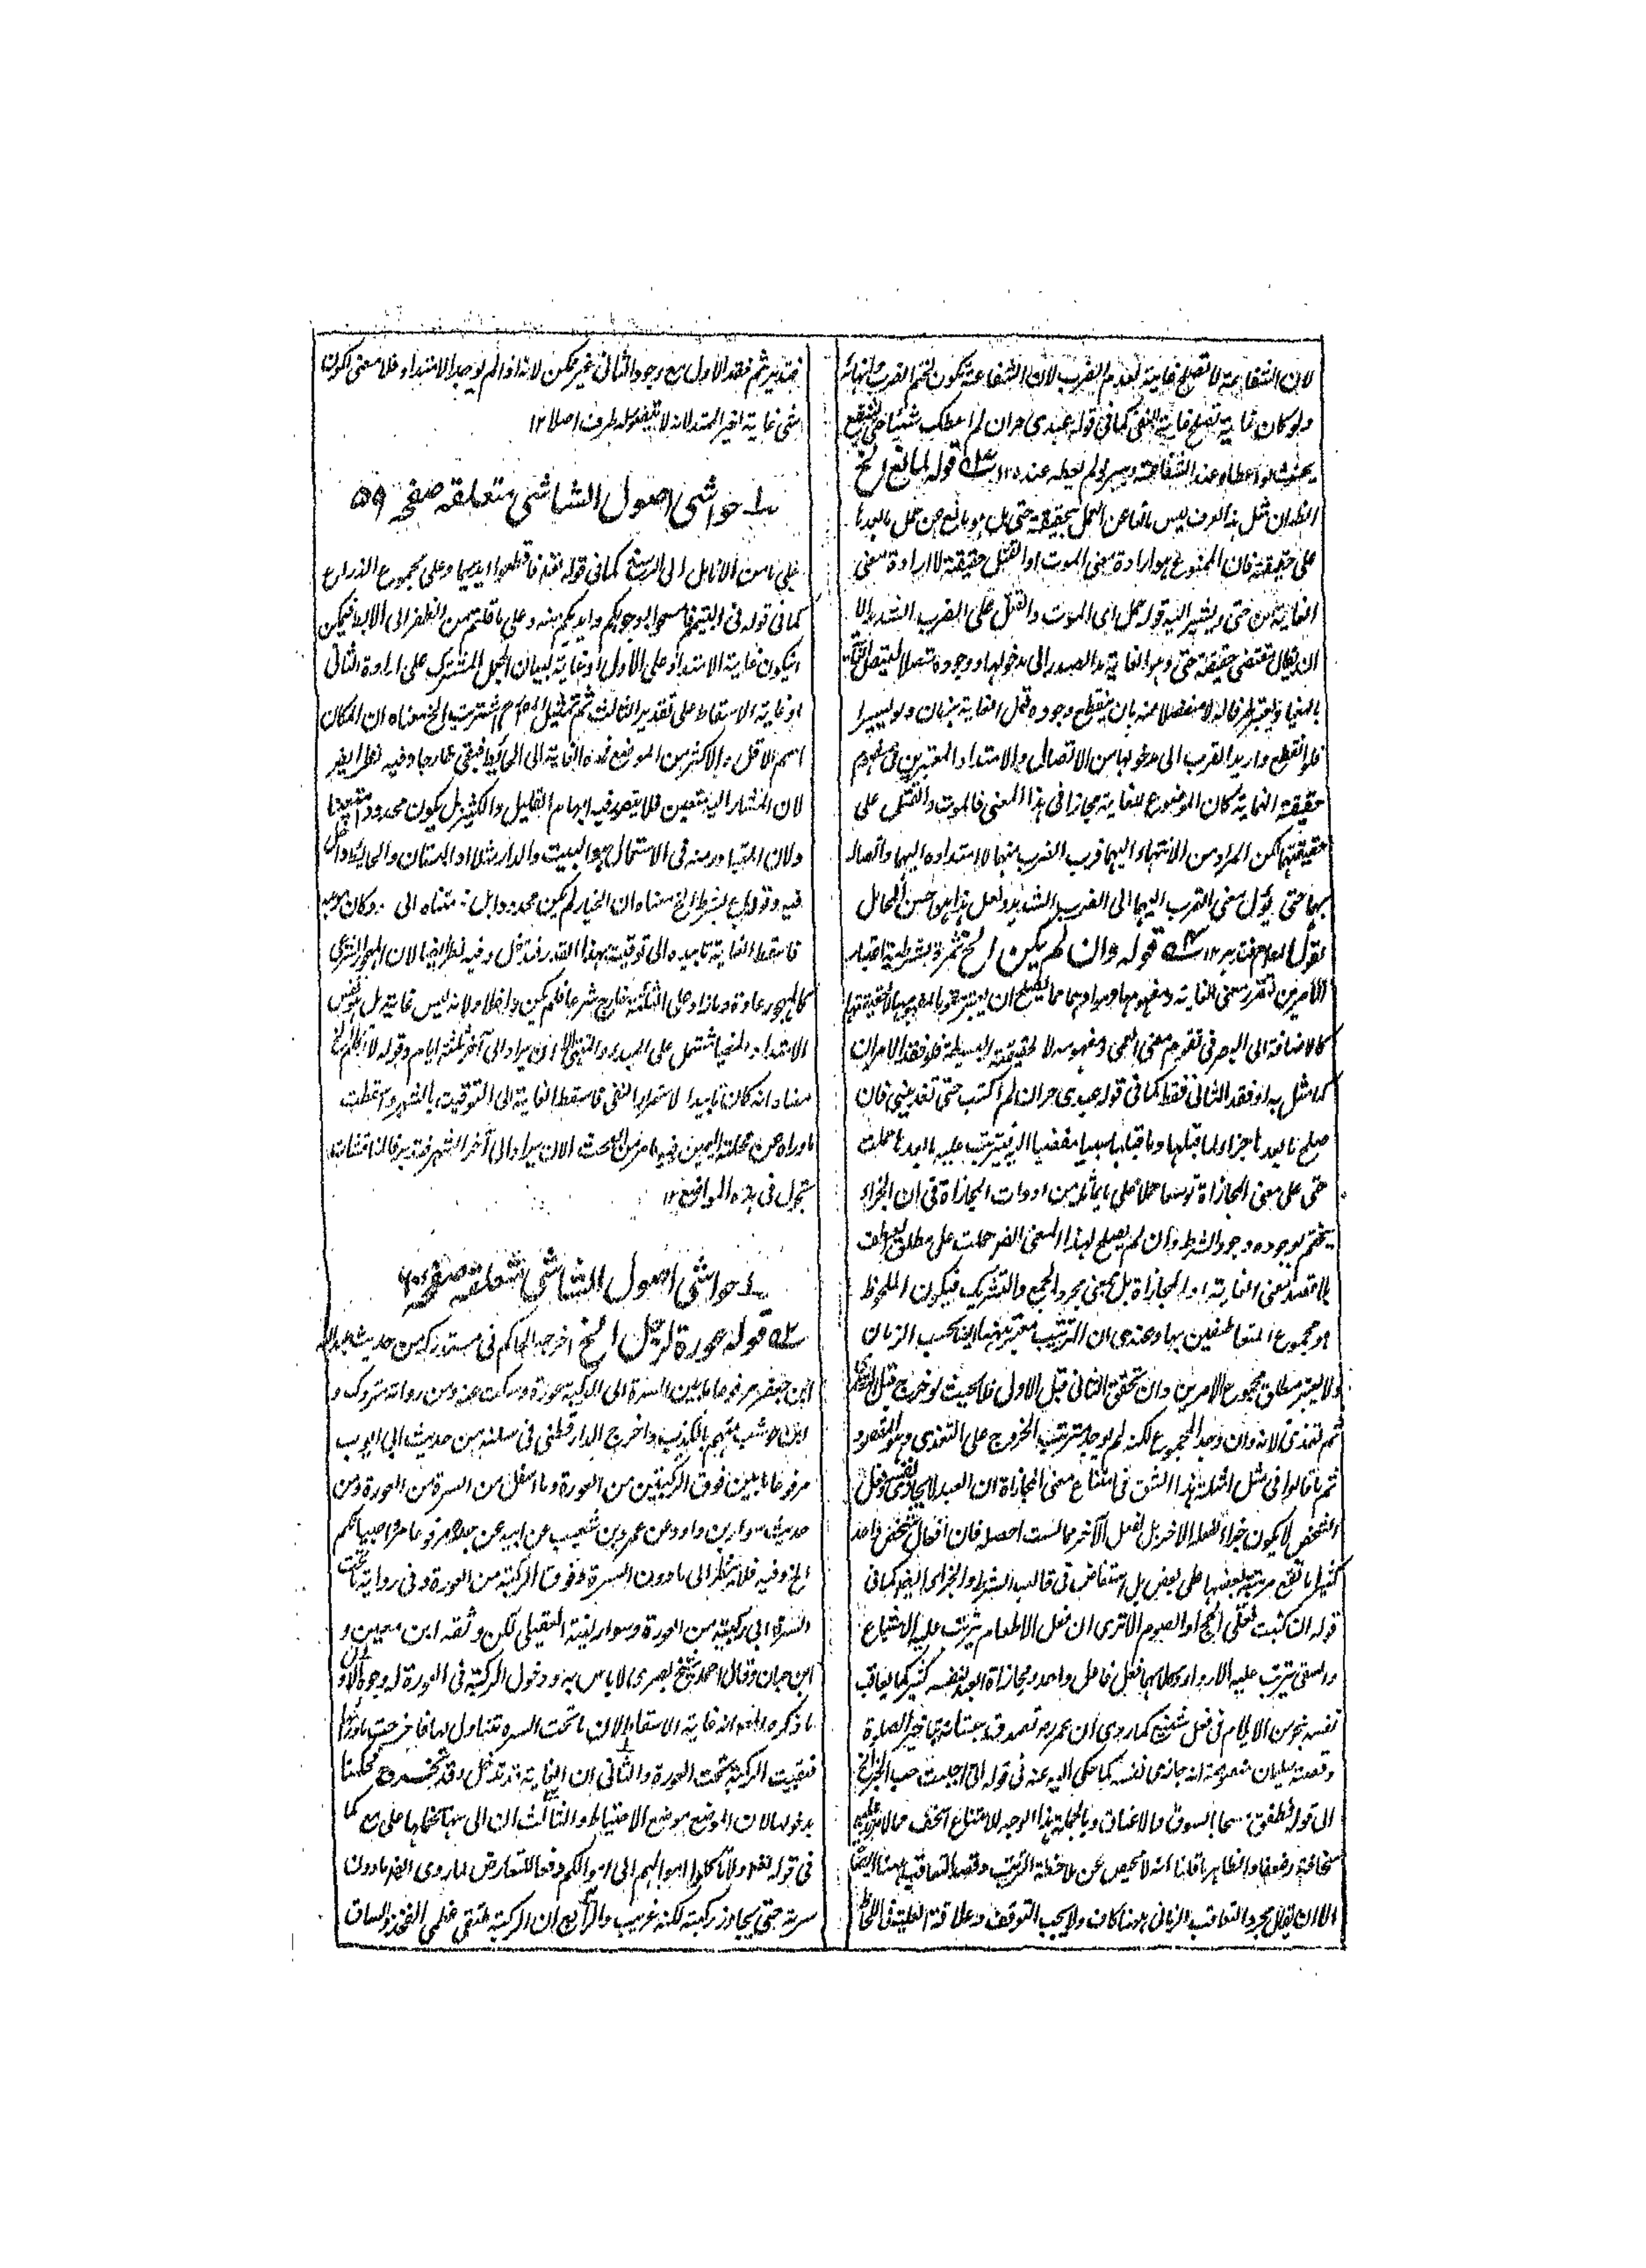 لان الشفاعة لا تصلح غاية لعدم الضرب لان الشفاعة تكون لختم الضرب وانهائه
ولو كان غاية تصلح غاية للنفى كما فى قوله عبدى حر ان لم اعطك شيئا حتى تشفع
يحنث لو اعطاه عند الشفاعة ويبر لو لم يعطه عنده ١٢ قوله لمانع الخ
الظ ان مثل هذا العرف ليس مانعا عن العمل بحقيقة حتى بل هو مانع عن حمل ما بعدها
على حقيقته فان الممنوع هو ارادة معنى الموت او القتل حقيقة لا ارادة معنى
الغاية من حتى ويشير اليه قوله حمل اى الموت والقتل على الضرب الشديد الا
ان يقال تقتضى حقيقة حتى وهو الغاية مد الصدر الى مدخولها ووجوده متصلا
بالمغيا ويعتبر طرفا له لا منفصلا عنه بان ينقطع وجوده قبل الغاية بزمان ولو يسيرا
فلو انقطع واريد القرب الى مدخولها من الاتصال والامتداد المعتبرين فى مفهوم
حقيقة الغاية كان الموضوع للغاية مجازا فى هذا المعنى فالموت والقتل على
حقيقتهما لكن المراد من الانتهاء اليهما قرب الضرب منهما لا امتداده اليهما واتصاله
بهما حتى يؤل معنى القرب اليهما الى الضرب الشديد ولعل هذا هو احسن المحامل
لقول العلام فتدبر ١٢ قوله وان لم يكن الخ ثمرة بشرطية اعتبار
الامرين تقرر معنى الغاية ومفهومها وهو انهما مما يصلح ان يعتبر تقوما لمفهومها لا لحقيقتها
كالاضافة الى البصر فى تقوم معنى العمى ومفهومه لا لحقيقته البسيطة فلو فقد الامران
كما مثل به او فقد الثانى فقط كما فى قوله عبدى حر ان لم آتك حتى تغدينى فان
صلح ما بعدها جزاء لما قبلها وما قبلها سببا مفضيا اليه يترتب عليه ما بعدها حملت
حتى على معنى المجازاة توسعا حملا على ما يماثله من ادوات المجازاة فى ان الجزاء
يختم بوجوده وجود الشرط وان لم يصلح لهذا المعنى ايضا حملت على مطلق العطف
بلا قصد لمعنى الغاية او المجازاة بل بمعنى مجرد الجمع والتشريك فيكون الملحوظ
هو مجموع المتعاطفين بها وعندى ان الترتيب معتبر ههنا ايضا بحسب الزمان
ولا يعتبر مطلق مجموع الامرين وان تحقق الثانى قبل الاول فلا يحنث لو خرج قبل
ثم تغدى لانه وان وجد المجموع لكنه لم يوجد ترتب الخروج على التغدى وهو المقصود
ثم ما قالوا فى مثل امثلة هذا الشق فى امتناع معنى المجازاة ان العبد لا يجازى نفسه وفعل
الشخص لا يكون جزاء لفعله الآخر بل لفعل الآخر مما لست احصله فان افعال شخص واحد
كثيرا ما تقع مرتبة بعضها على بعض بل استفاض فى قالب الشرط والجزاء ايضا كما فى
قوله ان كنت فعلى الحج او الصوم الا ترى ان فعل الاطعام يترتب عليه الاشباع
والسقى يترتب عليه الارواء وكلاهما فعل فاعل واحد ومجازاة العبد لنفسه كثير كما يعاقب
نفسه بنحو من الايلام فى فعل شنيع كما روى ان عمر رض تصدق ببستانه بتاخير الصلوة
وقصة سليمان منصوصة انه جازى نفسه كما حكى الله عنه فى قوله انى احببت حب الخير الخ
الى قوله فطفق مسحا بالسوق والاعناق وبالجملة هذا الوجه للامتناع سخف مما لا يتفوه عليه
سخافة وضعفا والظاهر ما قلنا انه لا محيص عن ملاحظة الترتيب وقصد التعاقب ههنا ايضا
الا ان يقال مجرد التعاقب الزمانى ههنا كاف ولا يجب التوقف وعلاقة العلية فى اللحاظ
فتدبر ثم فقد الاول مع وجود الثانى غير ممكن لانه اذا لم يوجد الامتداد فلا معنى لكون
شئ غاية لغير الممتد لانه لا يتصور له طرف اصلا ١٢
حواشى اصول الشاشى متعلقه صفحه ٥٩
على ما من الانامل الى الرسغ كما فى قوله تعالى فاقطعوا ايديهما وعلى مجموع الذراع
كما فى قوله فى التيمم فامسحوا بوجوهكم وايديكم منه وعلى ما قلتم من الظفر الى الابط فيمكن
ان يكون غاية الامتداد على الاول او غاية لبيان المجمل المشترك على ارادة الثانى
او غاية الاسقاط على تقدير الثالث ثم تمثيل المص رح اشتريت الخ معناه ان المكان
اسم للاقل والاكثر من الموضع فمده الغاية الى الحائط فبقى خارجا وفيه نظر ايضا
لان المشار اليه متعين فلا يتصور فيه ابهام القليل والكثير بل يكون محدودا متعينا
ولان المتبادر منه فى الاستعمال هو البيت والدار مثلا او البستان والحائط داخل
فيه وقوله باع بشرط الخ معناه ان الخيار لم يكن محدودا بل متناه الى وكان موجبه
فاسقط الغاية تابيده الى توقيته بهذا القدر فتدخل وفيه نظر ايضا لان المهجور الشرعى
كالمهجور عادة وما زاد على الثلثة خارج شرعا فلم يكن داخلا ولانه ليس غاية بل هو نفس
الامتداد والمغيا مشتمل على المبدء والمنتهى الا ان يراد الى آخر ثلثة ايام وقوله لا اكلم الخ
معناه انه كان تابيدا لاستمرار النفى فاسقط الغاية الى التوقيت بالشهر واسقطت
ما وراءه عن تحلة اليمين وفيه ما مر من البحث الا ان يراد الى آخر الشهر فتدبر فان المقتضيات
تتحول فى هذه المواضع ١٢
حواشى اصول الشاشى متعلقه صفحه ٦٠
قوله عورة الرجل الخ اخرجه الحاكم فى مستدركه من حديث عبد الله
ابن جعفر مرفوعا ما بين السرة الى الركبة عورة وسكت عنه ومن رواته متروك و
ابن حوشب متهم بالكذب واخرج الدارقطنى فى سننه من حديث ابى ايوب
مرفوعا ما بين فوق الركبتين من العورة وما اسفل من السرة من العورة ومن
حديث سوار بن داود عن عمرو بن شعيب عن ابيه عن جده مرفوعا مروا صبيانكم
الخ وفيه فلا ينظر الى ما دون السرة وفوق الركبة من العورة وفى رواية ما تحت
السرة الى ركبته من العورة وسوار لينه العقيلى لكن وثقه ابن معين و
ابن حبان وقال احمد شيخ بصرى لا باس به ودخول الركبة فى العورة له وجوه الاول
ما ذكره المص انه غاية الاسقاط لان ما تحت السرة تتناول لها فاخرجت ما وراءها
فبقيت الركبة تحت العورة والثانى ان الغاية قد تدخل وقد تخرج فحكمنا
بدخولها لان الموضع موضع الاحتياط والثالث ان الى ههنا محلها على مع كما
فى قوله تعالى ولا تاكلوا اموالهم الى اموالكم دفعا للتعارض لما روى ايضا ما دون
سرته حتى يجاوز ركبته لكنه غريب والرابع ان الركبة ملتقى عظمى الفخذ والساق